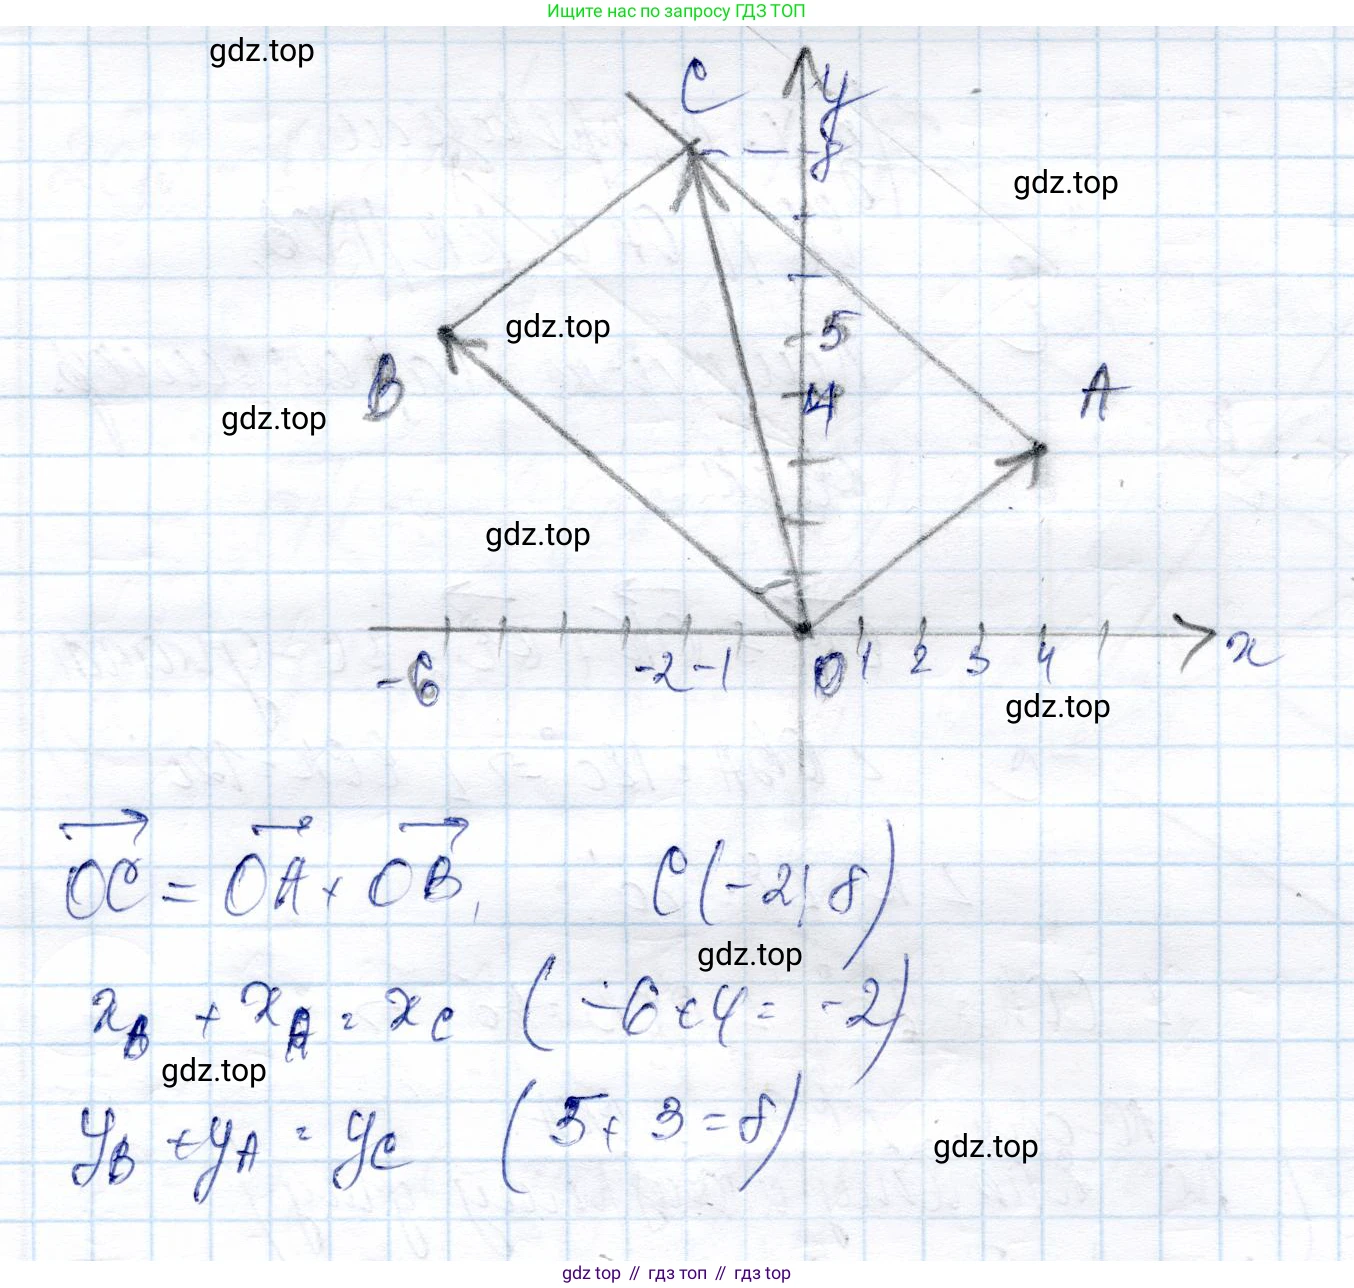 Ищите нас по запросу ГДЗ ТОП
gdz.top
C y
8
gdz.top
5
gdz.top
B 4 A
gdz.top
gdz.top
-6 -2 -1 0 1 2 3 4 x
gdz.top
OC = OA + OB, C(-2; 8)
gdz.top
x_B + x_A = x_C (-6 + 4 = -2)
gdz.top
y_B + y_A = y_C (5 + 3 = 8)
gdz.top
gdz top // гдз топ // gdz top